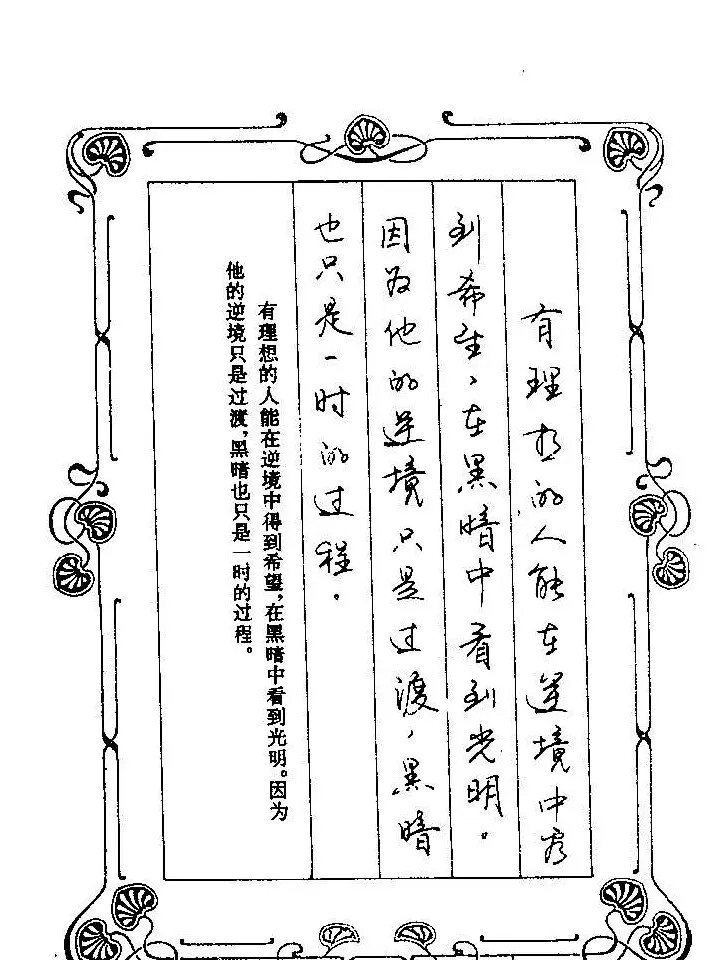 有理想的人能在逆境中得
到希望，在黑暗中看到光明。
因为他的逆境只是过渡，黑暗
也只是一时的过程。
有理想的人能在逆境中得到希望，在黑暗中看到光明。因为
他的逆境只是过渡，黑暗也只是一时的过程。